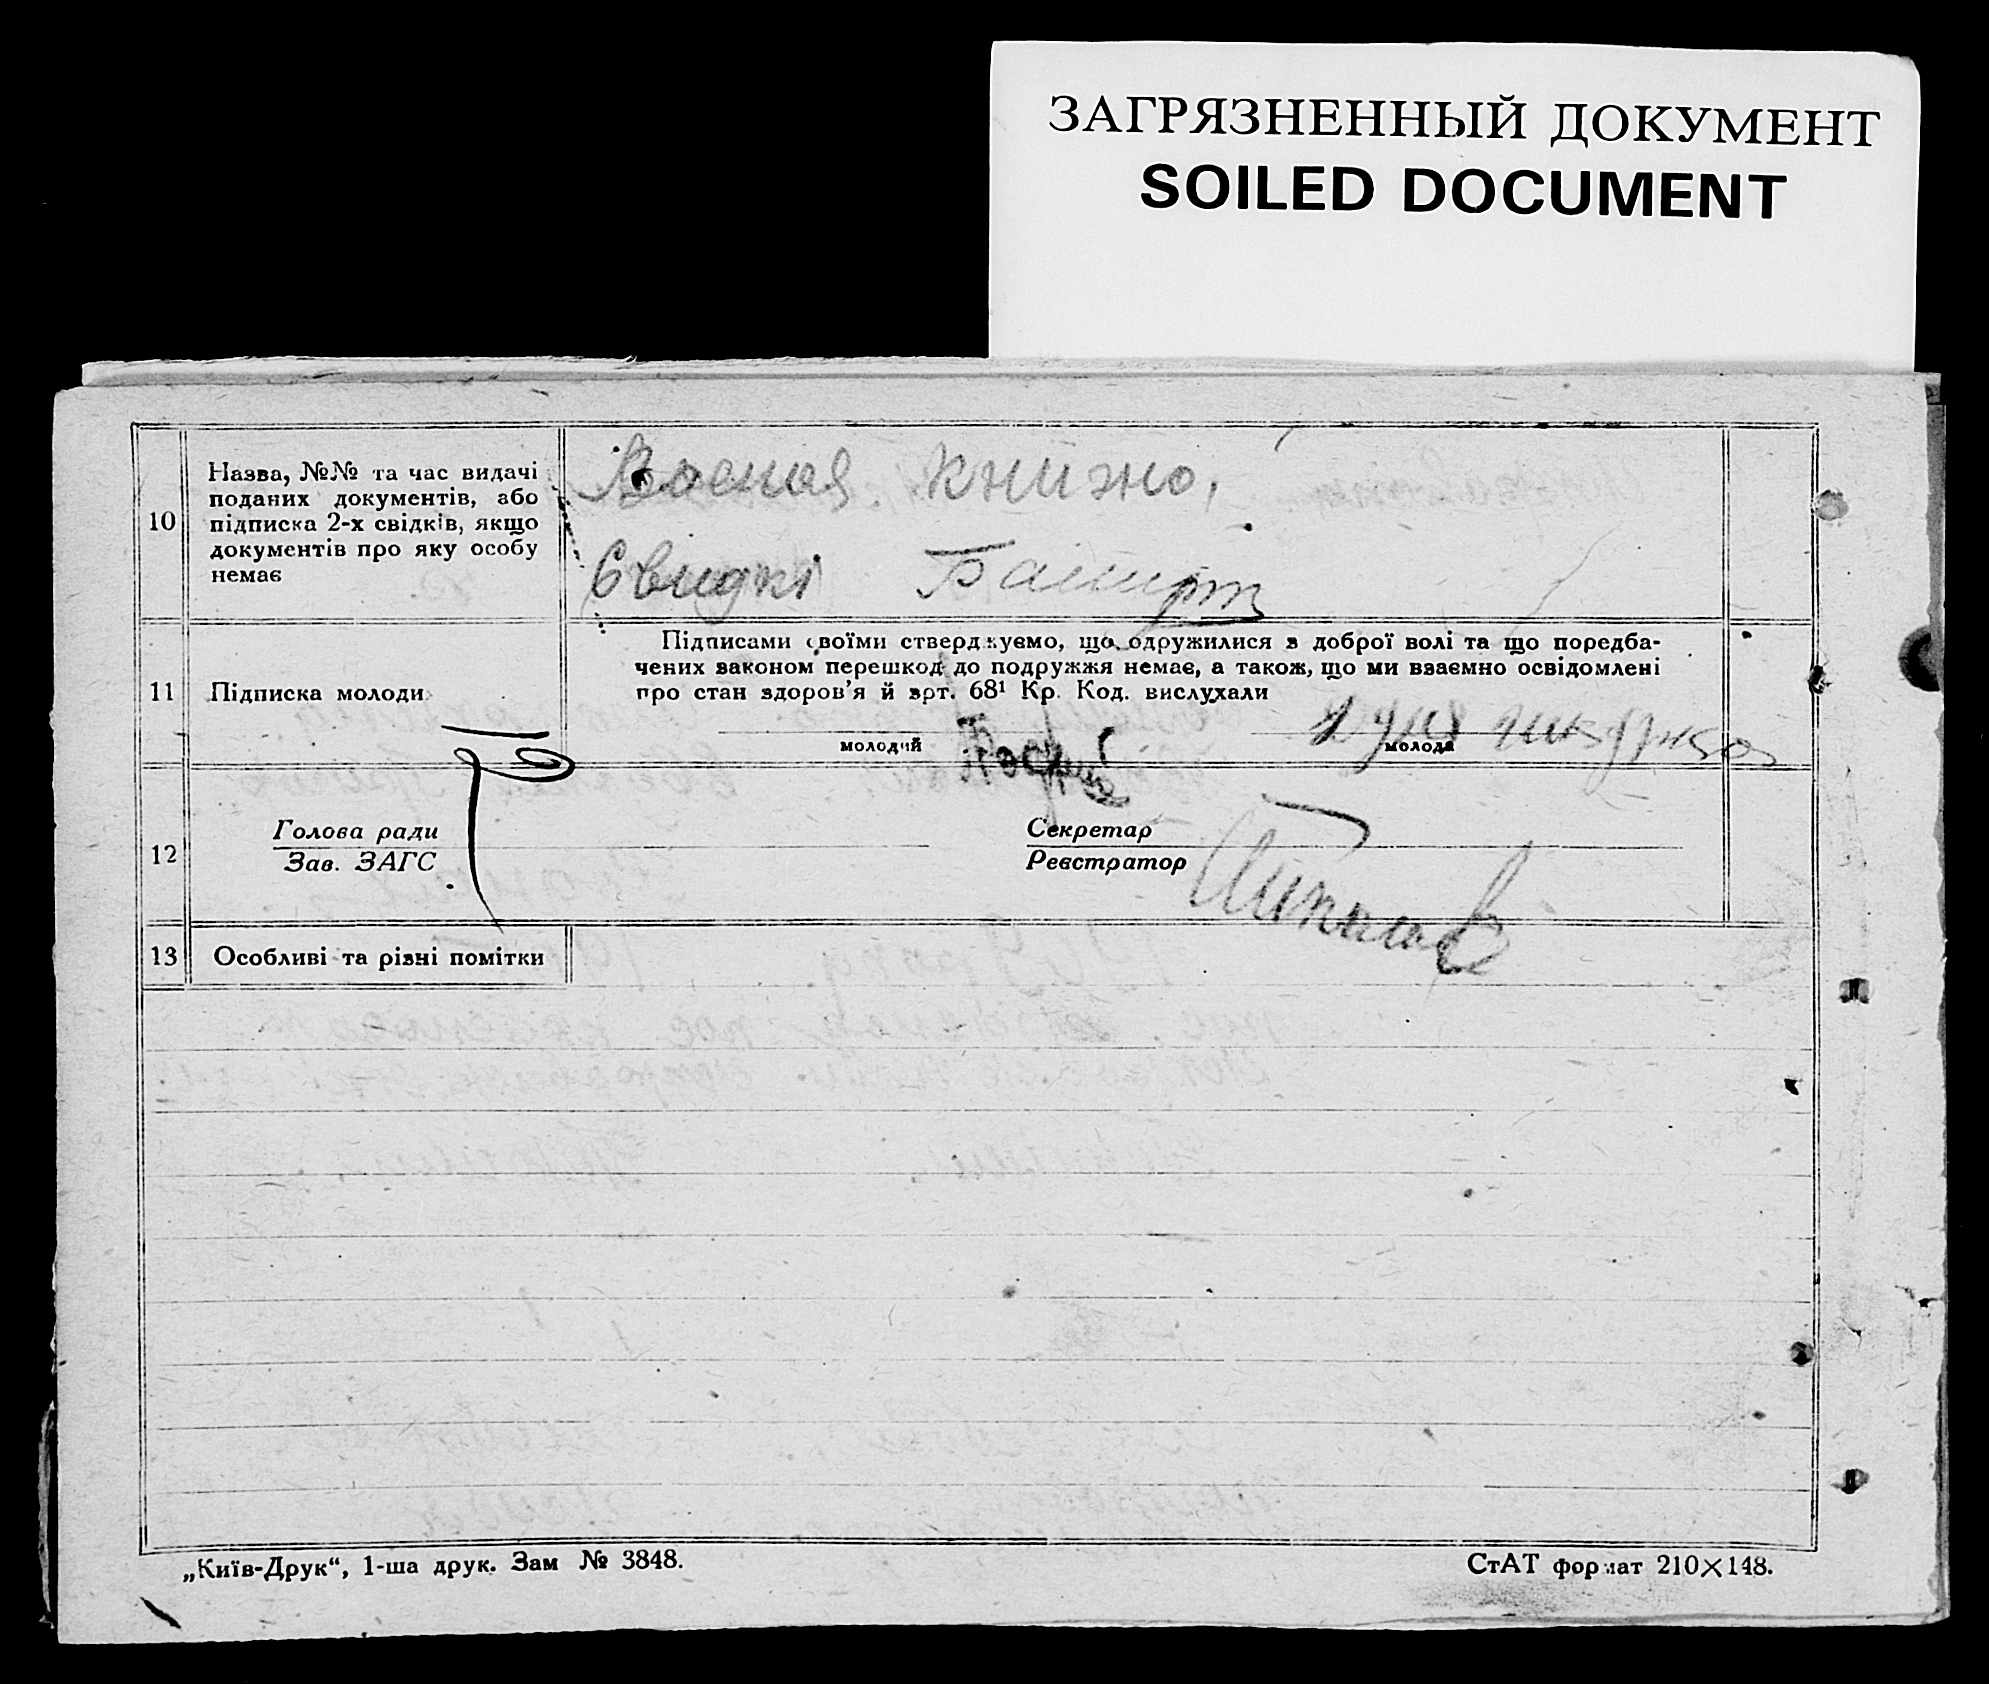 ЗАГРЯЗНЕННЫЙ ДОКУМЕНТ
SOILED DOCUMENT
10
Назва, №№ та час видачі
поданих документів, або
підписка 2-х свідків, якщо
документів про яку особу
немає
Воєная книжко,
Свидкі
11
Підписка молоди
Підписами своїми стверджуємо, що одружилися з доброї волі та що поредба-
чених законом перешкод до подружжя немає, а також, що ми взаємно освідомлені
про стан здоров'я й врт. 68¹ Кр. Код. вислухали
молодий
молода
12
Голова ради
Зав. ЗАГС
Секретар
Реєстратор
13
Особливі та різні помітки
„Київ-Друк“, 1-ша друк. Зам № 3848.
СтАТ формат 210×148.